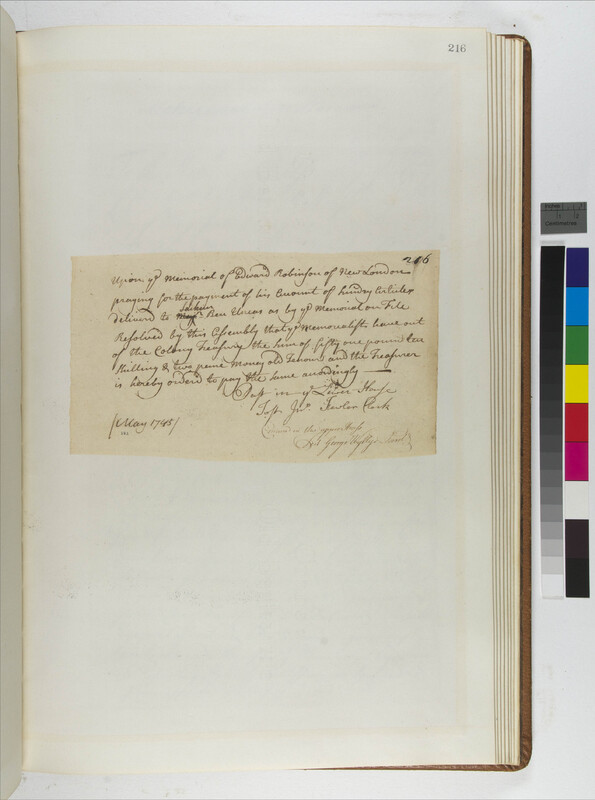 216
216
Upon ye Memorial of Edward Robinson of New London
praying for the payment of his amount of Sundry Articles
deliverd to Ben Uncas as by ye Memorial on File
Resolved by this Assembly that ye Memorialist have out
of the Colony Treasury the Sum of fifty one pound ten
Shilling & two pence Money old Tenour and the Treasurer
is hereby orderd to pay the same accordingly
Past in ye Lower House
Test Jno Fowler Clerk
[May 1745]
in the upper House
Test George Wyllys Secret